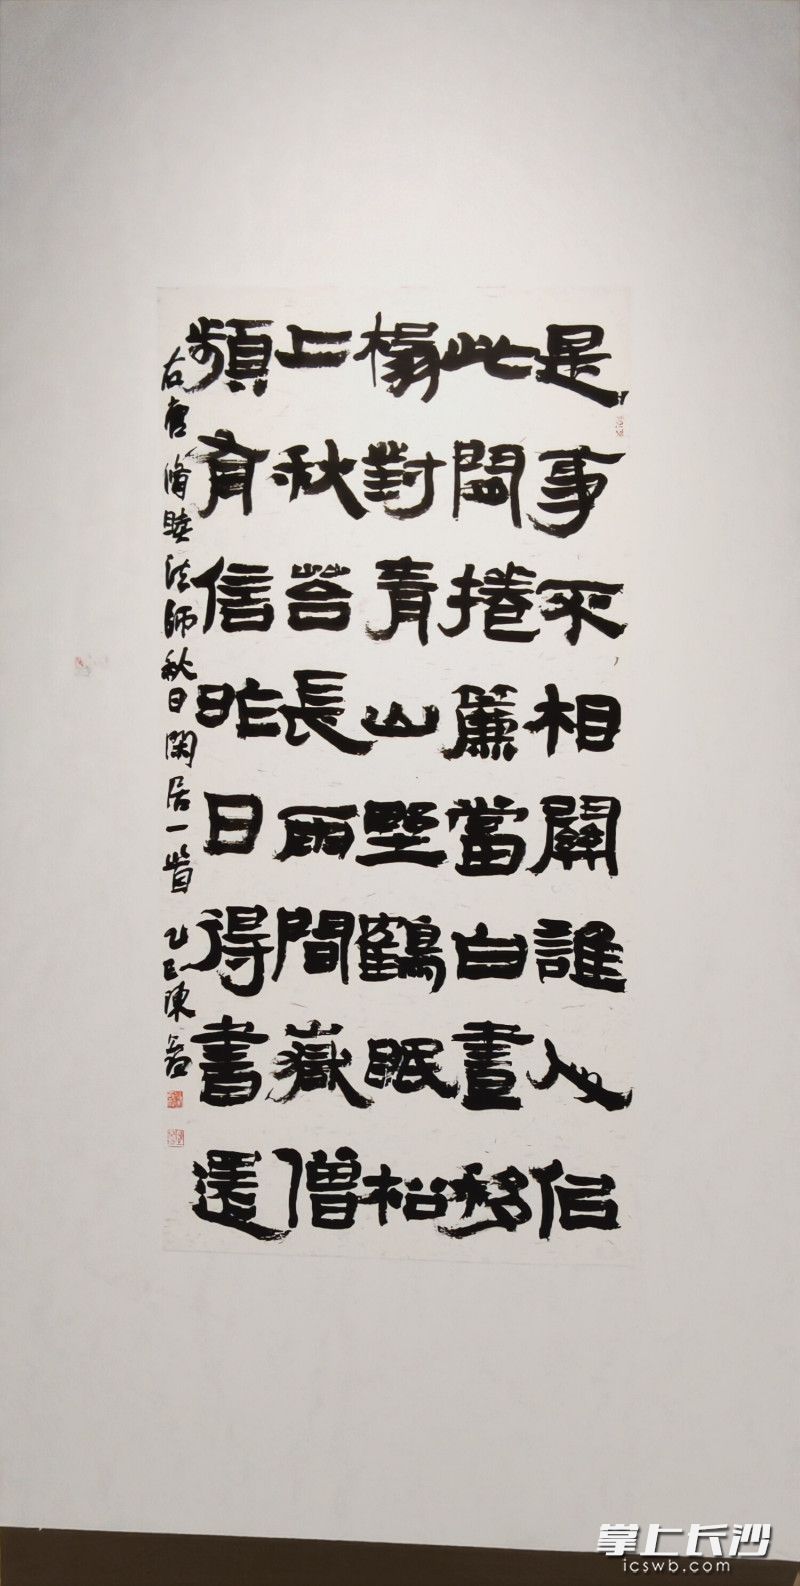 是事不相關誰人佀
此閒捲簾當白晝移
榻對青山野鶴眠松
上秋苔長雨間嶽僧
頻有信昨日得書還
右唐脩睦法師秋日閑居一首 乙巳陳
掌上长沙
icswb.com